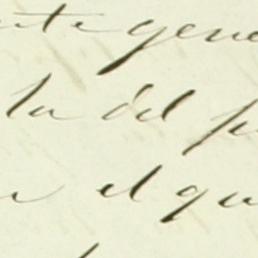 ente gene
la del p
el qu